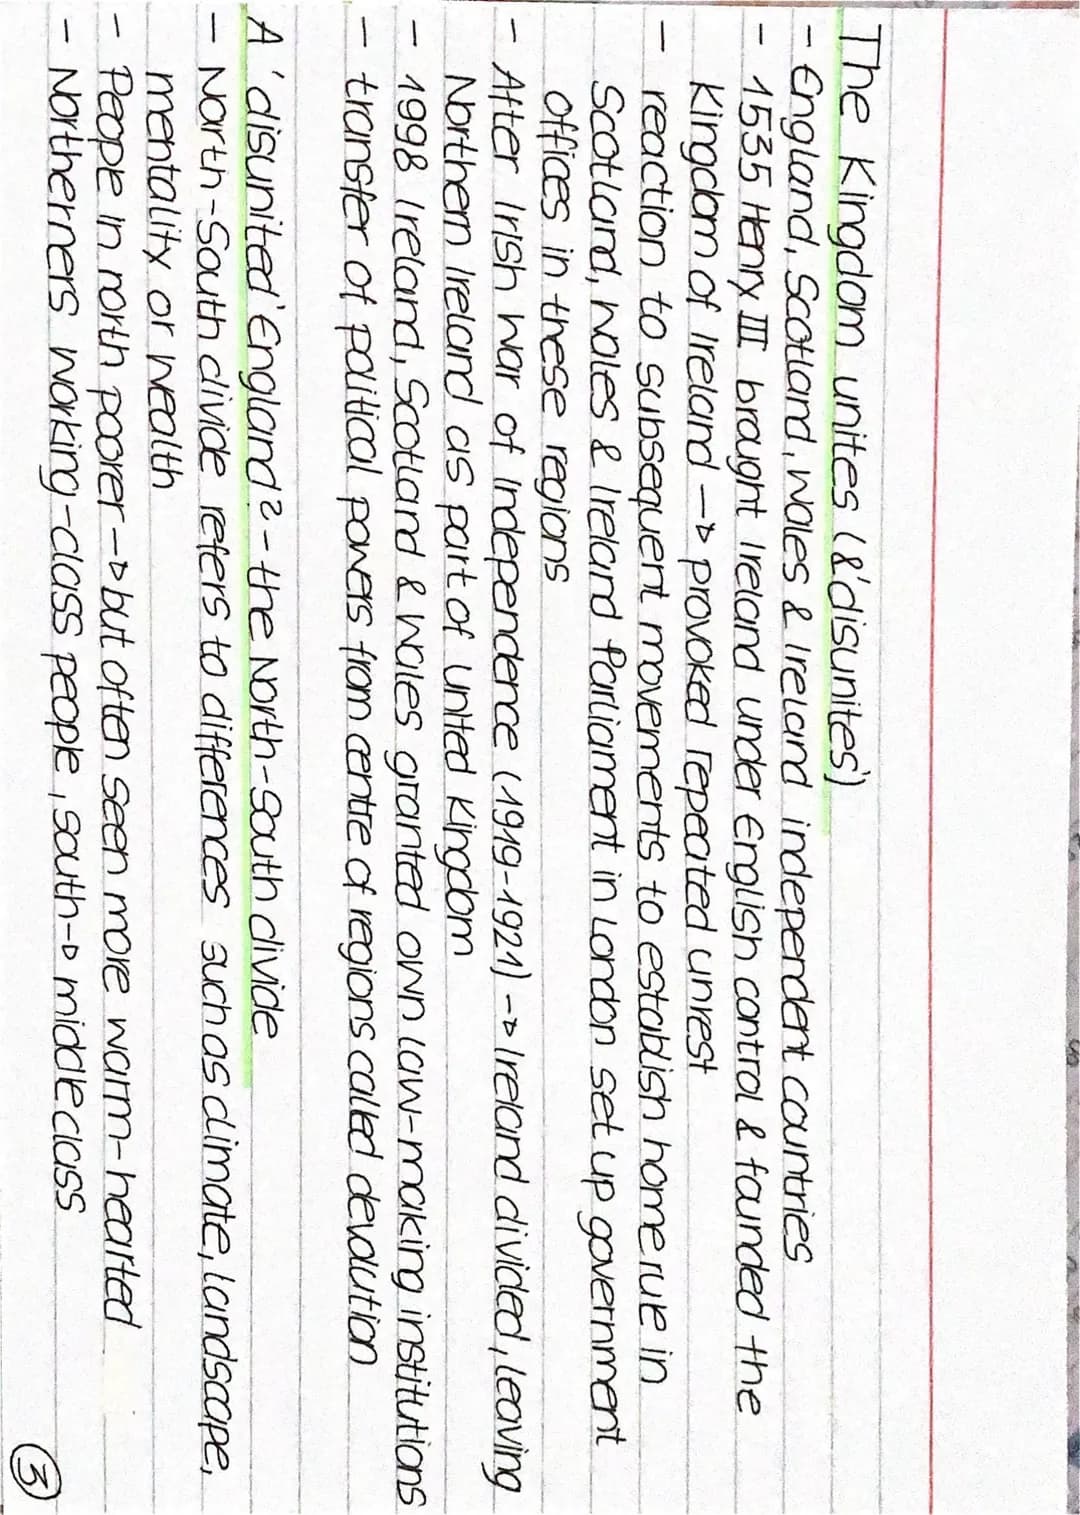 The Kingdom unites (&'disunites')
- England, Scotland, Wales & Ireland independent countries
- 1535 Henry III brought Ireland under English control & founded the
Kingdom of Ireland -> provoked repeated unrest
- reaction to subsequent movements to establish home rue in
Scotland, Wales & Ireland Parliament in London set up government
offices in these regions
- After Irish War of Independence (1919-1921) -> Ireland divided, leaving
Northern Ireland as part of United Kingdom
- 1998 Ireland, Scotland & Wales granted own law-making institutions
- transfer of political powers from centre of regions called devolution
A 'disunited' England? - the North-South divide
- North-South divide refers to differences such as climate, landscape,
mentality or wealth
- People in north poorer -> but often seen more warm-hearted
- Northerners working-class people, South -> middle class
3